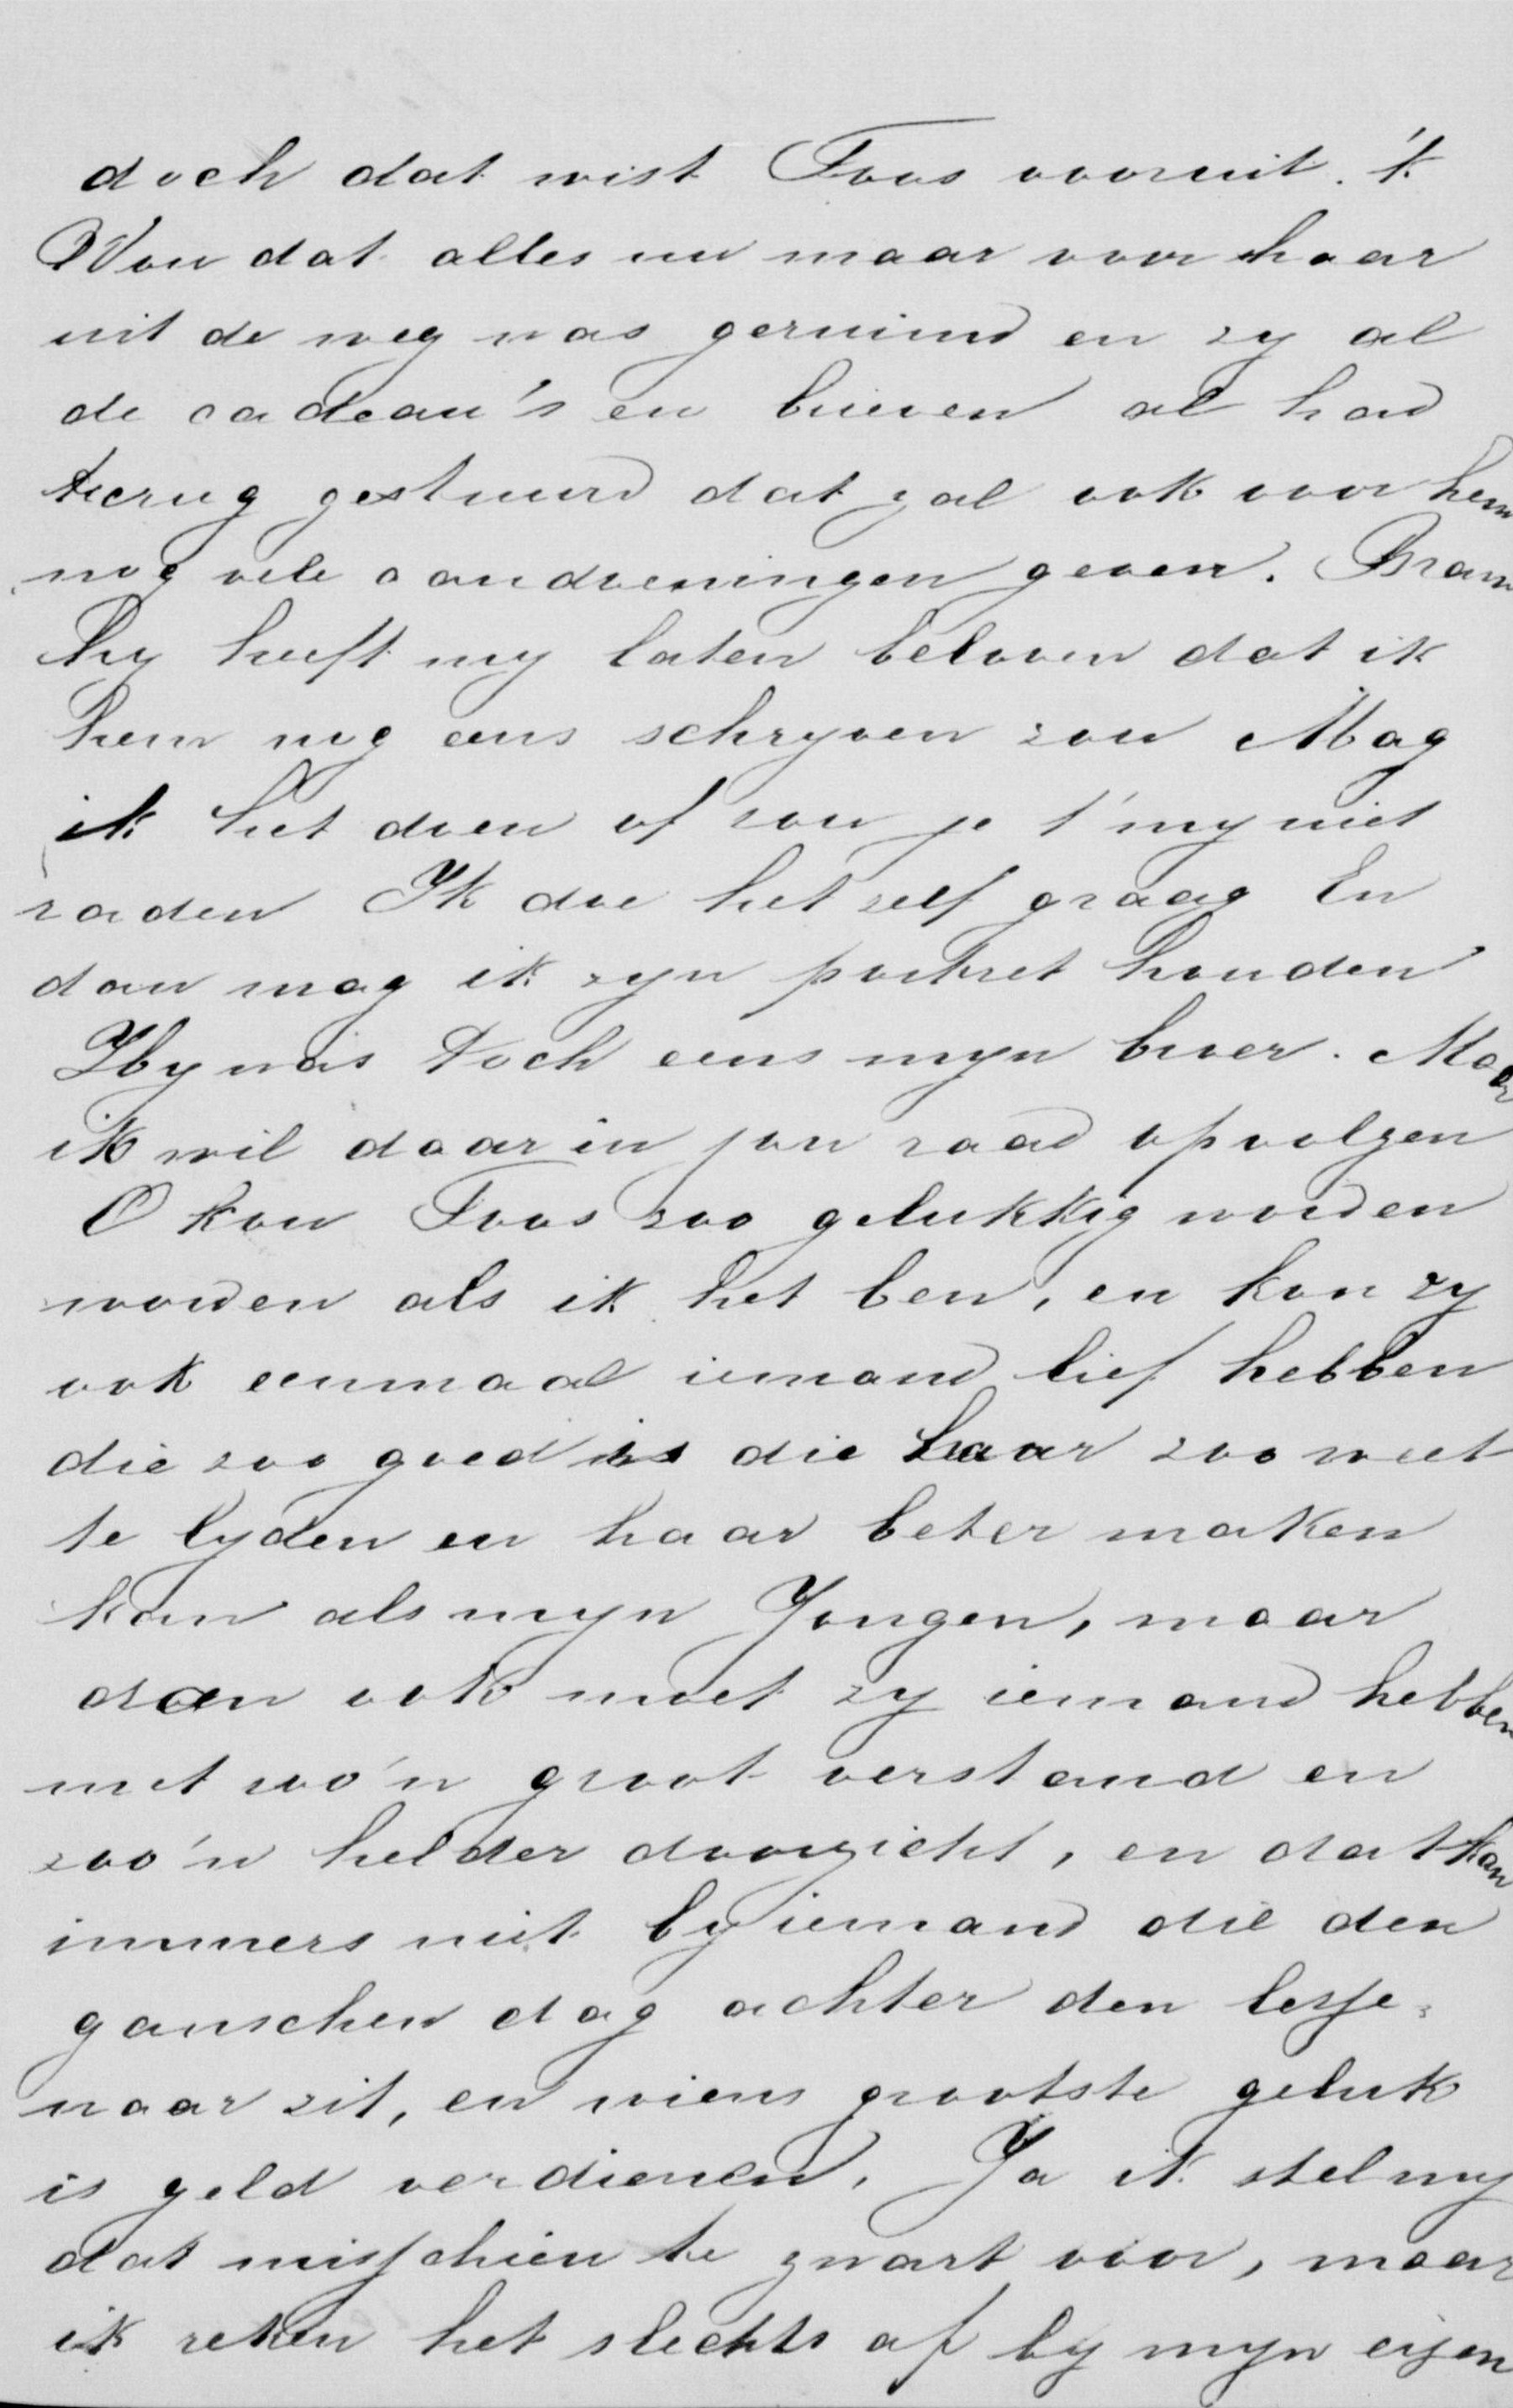 doch dat wist Foos vooruit. 'k
Wou dat alles nu maar voor haar
uit de weg was geruimd en zy al
de cadeau's en brieven al had
terug gestuurd dat zal ook voor hem
nog vele aandoeningen geven. Bram
hy heeft my laten beloven dat ik
hem nog eens schryven zou Mag
ik het doen of zou je t' my niet
raden Ik doe het zelf graag En
dan mag ik zyn portret houden
Hy was toch eens myn broer. Maar
ik wil daarin jou raad opvolgen
O kon Foos zoo gelukkig worden
worden als ik het ben, en kon zy
ook eenmaal iemand lief hebben
die zoo goed is die haar zoo weet
te lyden en haar beter maken
kan als myn Jongen, maar
dan ook moet zy iemand hebben
met zoo'n groot verstand en
zoo'n helder doorzicht, en dat kan
immers niet by iemand die den
ganschen dag achter den lesse-
naar zit, en wiens grootste geluk
is geld verdienen. Ja ik stel my
dat misschien te zwart voor, maar
ik reken het slechts af by myn eigen